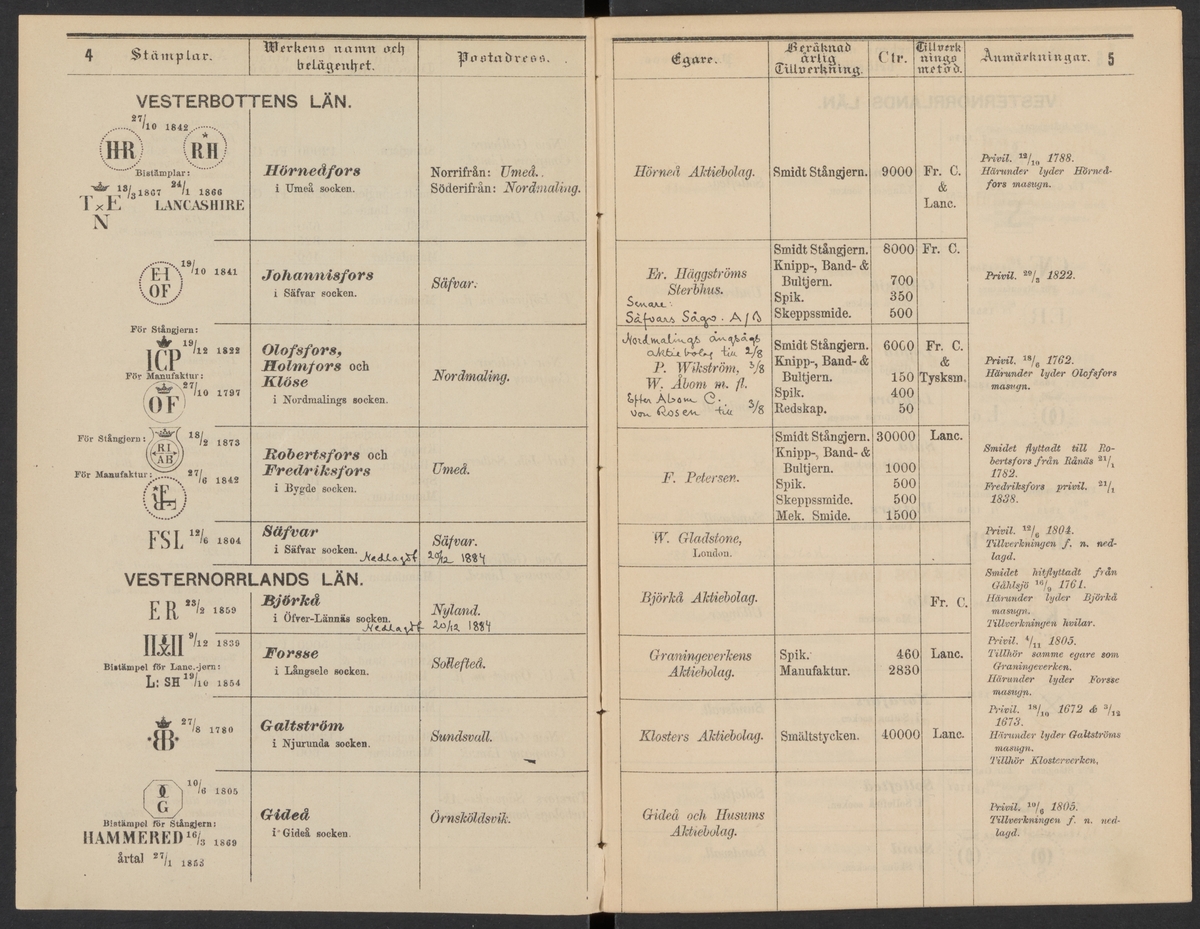 4 Stämplar.
Werkens namn och
belägenhet.
Postadress.
VESTERBOTTENS LÄN.
27/10 1842
HR RH
Bistämplar:
13/3 1867 24/1 1866
T×E LANCASHIRE
N
Hörneåfors
i Umeå socken.
Norrifrån: Umeå.
Söderifrån: Nordmaling.
19/10 1841
EH
OF
Johannisfors
i Säfvar socken.
Säfvar.
För Stångjern:
19/12 1822
ICP
För Manufaktur:
27/10 1797
OF
Olofsfors,
Holmfors och
Klöse
i Nordmalings socken.
Nordmaling.
För Stångjern: 18/2 1873
RI
AB
För Manufaktur: 27/6 1842
Robertsfors och
Fredriksfors
i Bygde socken.
Umeå.
FSL 12/6 1804
Säfvar
i Säfvar socken.
Säfvar.
Nedlagdt 20/12 1884
VESTERNORRLANDS LÄN.
ER 23/2 1859
Björkå
i Öfver-Lännäs socken.
Nyland.
Nedlagdt 20/12 1884
9/12 1839
Bistämpel för Lanc.-jern:
L: SH 19/10 1854
Forsse
i Långsele socken.
Sollefteå.
27/8 1780
Galtström
i Njurunda socken.
Sundsvall.
10/6 1805
G
Bistämpel för Stångjern:
HAMMERED 16/3 1869
årtal 27/1 1853
Gideå
i Gideå socken.
Örnsköldsvik.
Egare.
Beräknad
årlig
Tillverkning.
Ctr.
Tillverk
nings
metod.
Anmärkningar. 5
Hörneå Aktiebolag.
Smidt Stångjern. 9000 Fr. C.
&
Lanc.
Privil. 12/10 1788.
Härunder lyder Hörneå-
fors masugn.
Er. Häggströms
Sterbhus.
Senare:
Säfvars Sågv. A/B
Smidt Stångjern. 8000 Fr. C.
Knipp-, Band- &
Bultjern. 700
Spik. 350
Skeppssmide. 500
Privil. 20/3 1822.
Nordmalings ångsågs
aktiebolag till 2/8
P. Wikström, 3/8
W. Åbom m. fl.
Efter Åbom C.
von Rosen till 3/8
Smidt Stångjern. 6000 Fr. C.
Knipp-, Band- & &
Bultjern. 150 Tysksm.
Spik. 400
Redskap. 50
Privil. 18/6 1762.
Härunder lyder Olofsfors
masugn.
F. Petersen.
Smidt Stångjern. 30000 Lanc.
Knipp-, Band- &
Bultjern. 1000
Spik. 500
Skeppssmide. 500
Mek. Smide. 1500
Smidet flyttadt till Ro-
bertsfors från Rånäs 21/1
1782.
Fredriksfors privil. 21/1
1838.
W. Gladstone,
London.
Privil. 12/6 1804.
Tillverkningen f. n. ned-
lagd.
Björkå Aktiebolag.
Fr. C.
Smidet hitflyttadt från
Gåhlsjö 16/9 1761.
Härunder lyder Björkå
masugn.
Tillverkningen hvilar.
Graningeverkens
Aktiebolag.
Spik. 460 Lanc.
Manufaktur. 2830
Privil. 4/11 1805.
Tillhör samme egare som
Graningeverken.
Härunder lyder Forsse
masugn.
Klosters Aktiebolag.
Smältstycken. 40000 Lanc.
Privil. 18/10 1672 & 3/12
1673.
Härunder lyder Galtströms
masugn.
Tillhör Klosterverken.
Gideå och Husums
Aktiebolag.
Privil. 10/6 1805.
Tillverkningen f. n. ned-
lagd.